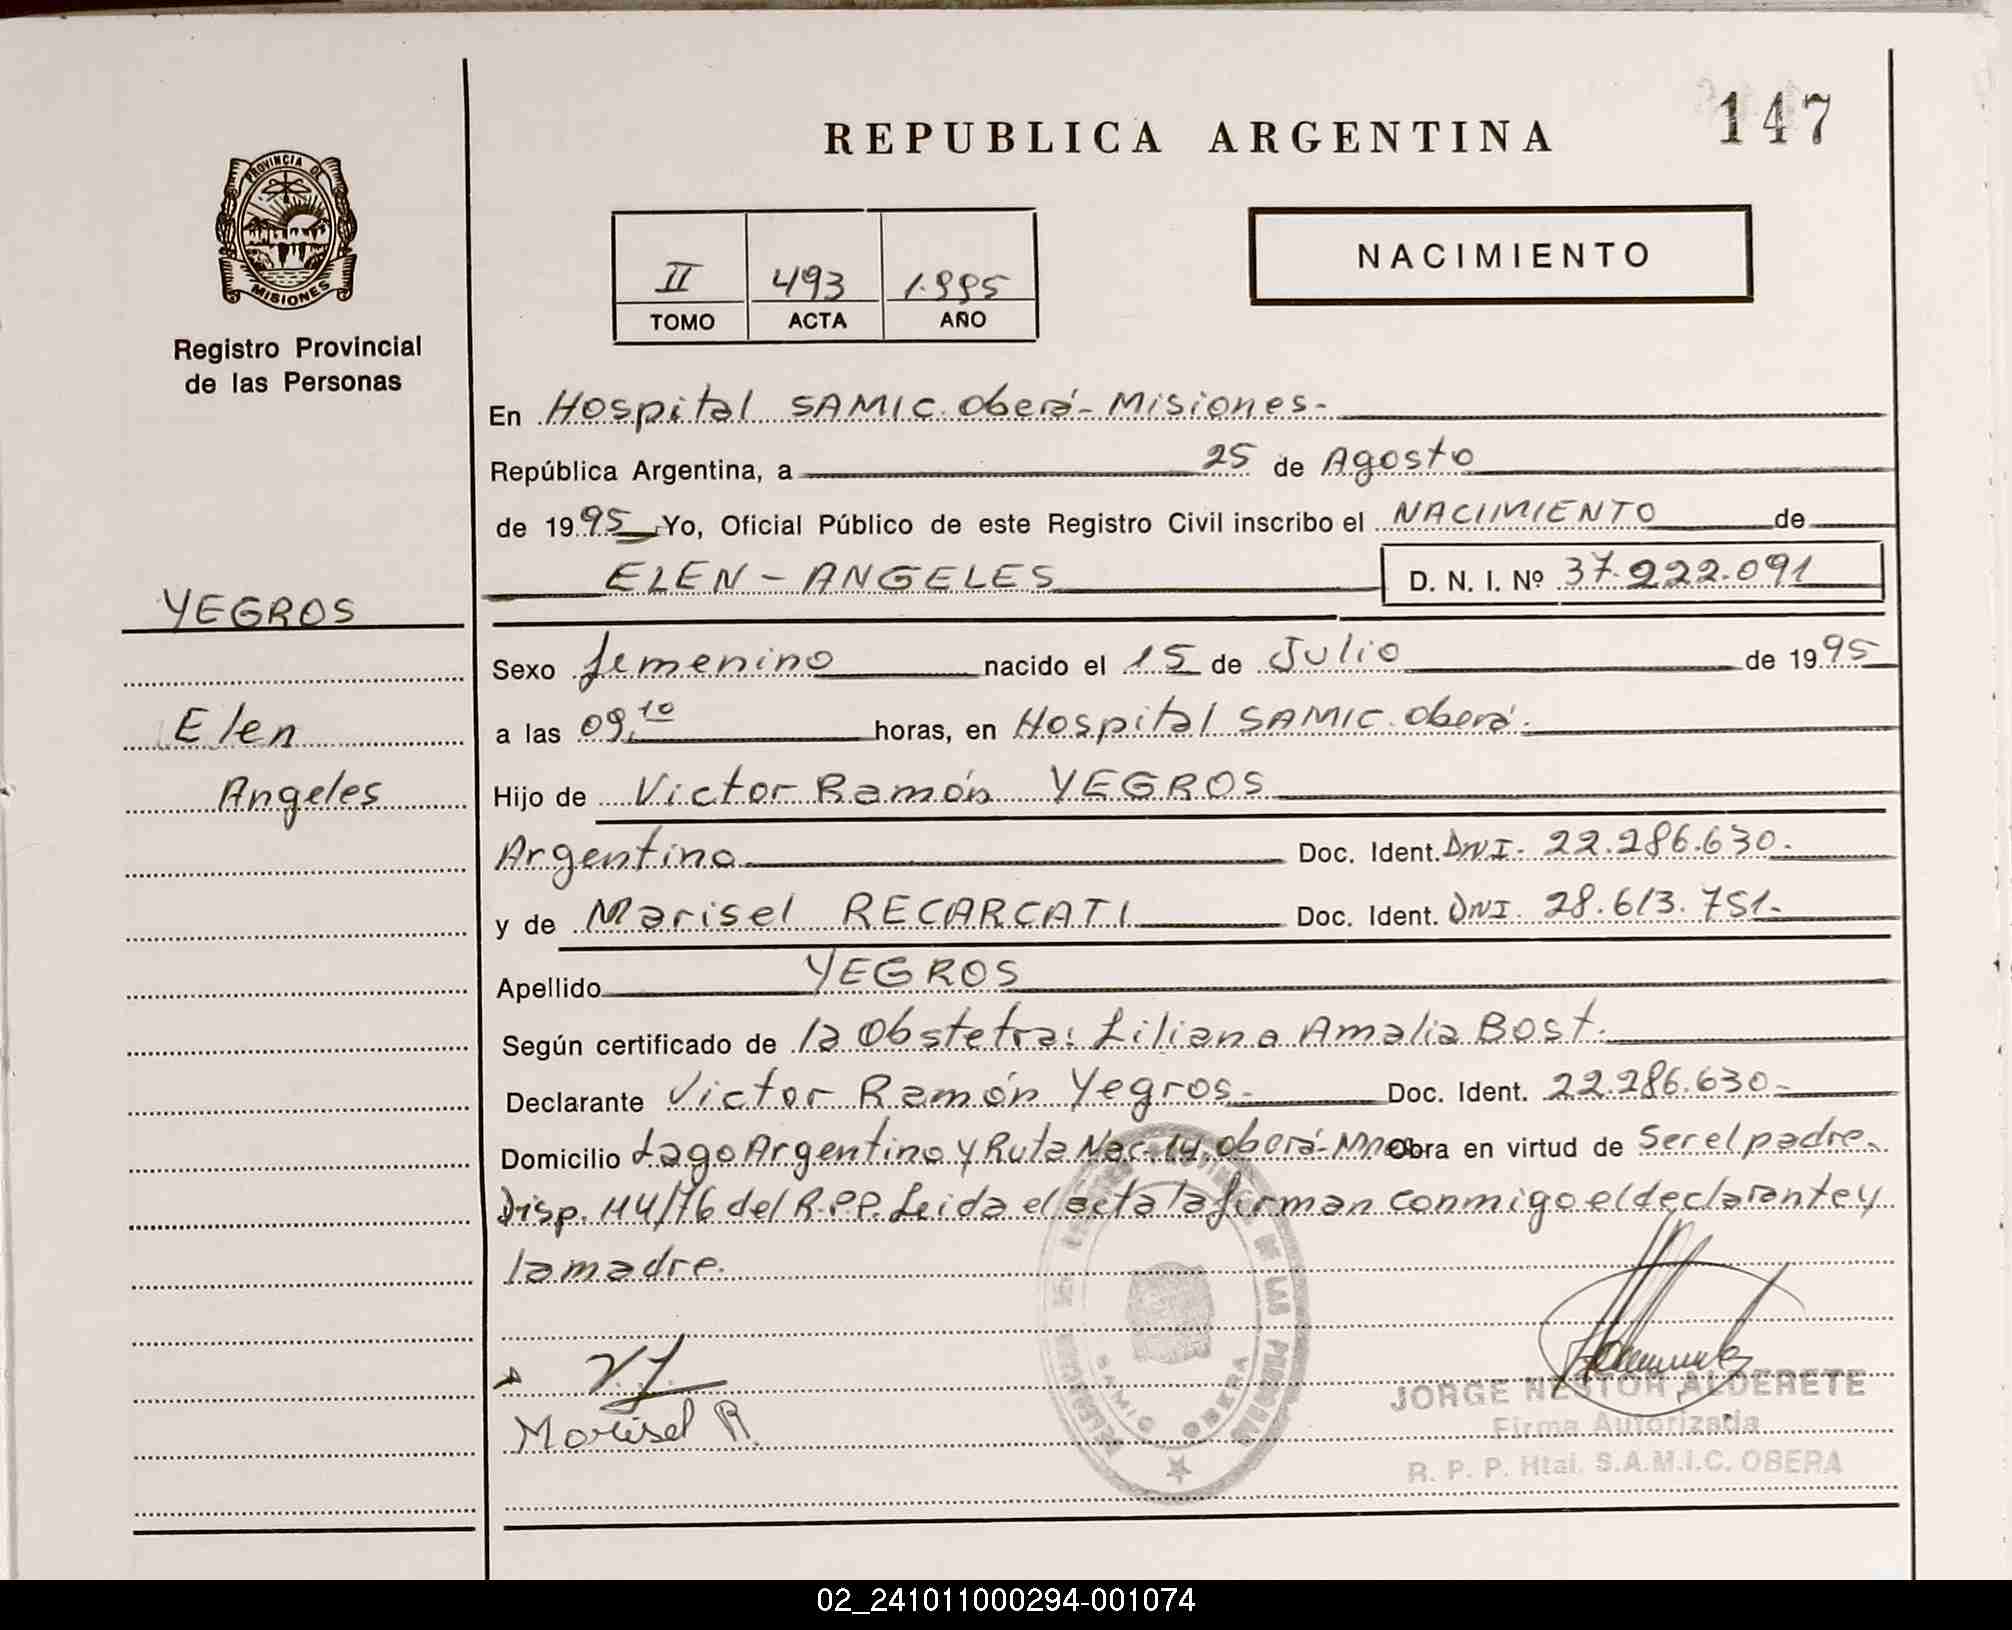 147
REPUBLICA ARGENTINA
PROVINCIA DE
MISIONES
Registro Provincial
de las Personas
II 493 1.995
TOMO ACTA AÑO
NACIMIENTO
En Hospital SAMIC. Oberá - Misiones.-
República Argentina, a 25 de Agosto
de 1995 Yo, Oficial Público de este Registro Civil inscribo el NACIMIENTO de
ELEN - ANGELES D. N. I. Nº 37.222.091
YEGROS
Elen
Angeles
Sexo femenino nacido el 15 de Julio de 1995
a las 09,10 horas, en Hospital SAMIC. Oberá.
Hijo de Victor Ramón YEGROS
Argentino Doc. Ident. DNI. 22.286.630.
y de Marisel RECARCATI Doc. Ident. DNI. 28.613.751.
Apellido YEGROS
Según certificado de la Obstetra: Liliana Amalia Bost.
Declarante Victor Ramón Yegros.- Doc. Ident. 22.286.630.-
Domicilio Lago Argentino y Ruta Nac. 14, Oberá - Mnes Obra en virtud de Ser el padre.
Disp. 114/76 del R.P.P. Leida el acta la firman conmigo el declarante y
la madre.
V.Y.
Marisel R.
DE LAS PERSONAS
SAMIC OBERA
JORGE NESTOR ALDERETE
Firma Autorizada
R. P. P. Htal. S.A.M.I.C. OBERA
02_241011000294-001074